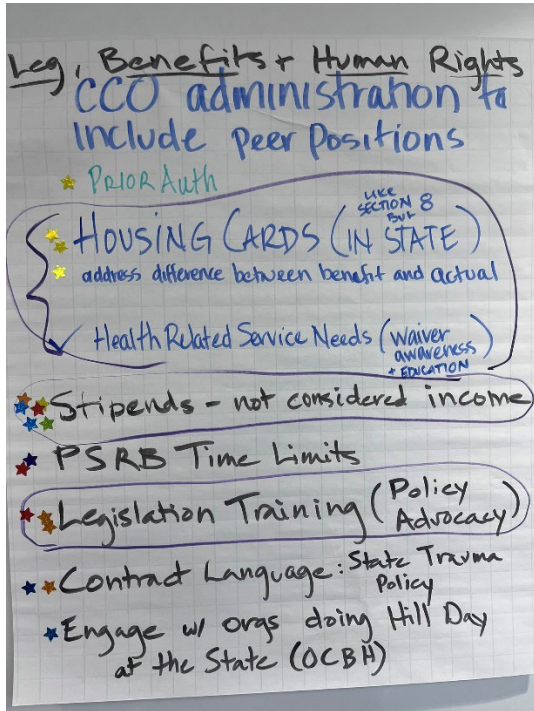 Leg, Benefits + Human Rights
CCO administration to
include peer positions
PRIOR Auth
LIKE
SECTION 8
BUT
HOUSING CARDS (IN STATE)
address difference between benefit and actual
Health Related Service Needs (waiver
awareness
+ EDUCATION)
Stipends - not considered income
PSRB Time Limits
Legislation Training (Policy
Advocacy)
Contract Language: State Trauma
Policy
Engage w/ orgs doing Hill Day
at the State (OCBH)